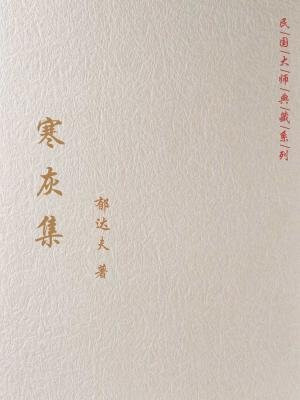 民|国|大|师|典|藏|系|列
寒灰集
郁达夫 著